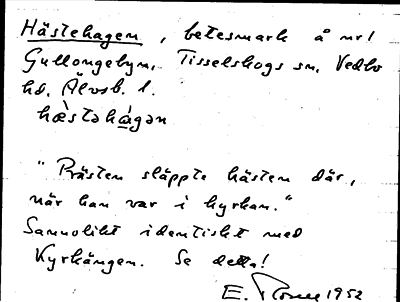 Hästehagen, betesmark å nr 1
Gullongebyn, Tisselskogs sn, Vedbo
hd, Älvsb. l.
hæ̀stəhá̱gən
"Prästen släppte hästen där,
när han var i kyrkan."
Sannolikt identiskt med
Kyrkängen. Se detta!
E. 1952